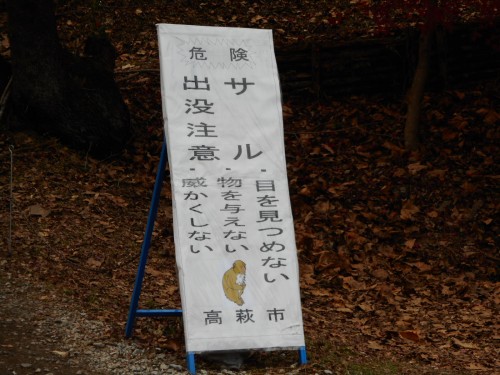 危険
サル
出没注意
・目を見つめない
・物を与えない
・威かくしない
高萩市